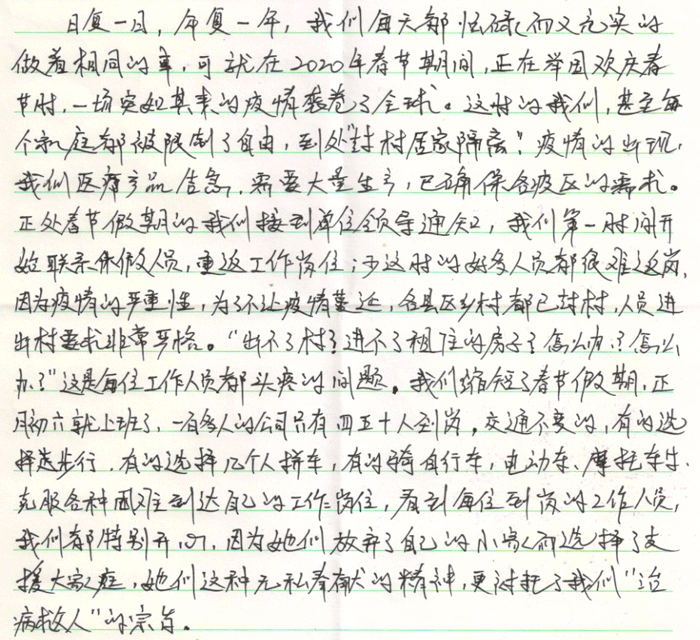 日复一日，年复一年，我们每天都忙碌而又充实的
做着相同的事，可就在2020年春节期间，正在举国欢庆春
节时，一场突如其来的疫情袭卷了全球。这时的我们，甚至每
个家庭都被限制了自由，到处"封村居家隔离"。疫情的出现，
我们医疗产品告急，需要大量生产，已确保各疫区的需求。
正处春节假期的我们接到单位领导通知，我们第一时间开
始联系休假人员，重返工作岗位；可这时的好多人员都很难返岗，
因为疫情的严重性，为了不让疫情蔓延，各县区乡村都已封村，人员进
出村要求非常严格。"出不了村？进不了租住的房子？怎么办？怎么
办？"这是每位工作人员都头疼的问题。我们缩短了春节假期，正
月初六就上班了，一百多人的公司只有四五十人到岗，交通不变的，有的选
择选步行，有的选择几个人拼车，有的骑自行车，电动车、摩托车等.
克服各种困难到达自己的工作岗位，看到每位到岗的工作人员，
我们都特别开心，因为她们放弃了自己的小家而选择了支
援大家庭，她们这种无私奉献的精神，更衬托了我们"治
病救人"的宗旨。